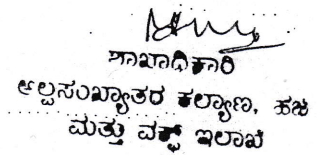 ಶಾಖಾಧಿಕಾರಿ
ಅಲ್ಪಸಂಖ್ಯಾತರ ಕಲ್ಯಾಣ, ಹಜ
ಮತ್ತು ವಕ್ಫ್ ಇಲಾಖೆ